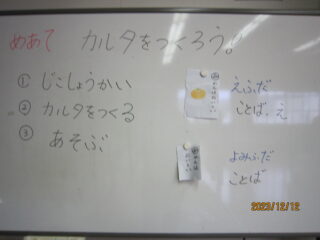 めあて カルタをつくろう!
① じこしょうかい
② カルタをつくる
③ あそぶ
えふだ
ことば、え
よみふだ
ことば
2023/12/12